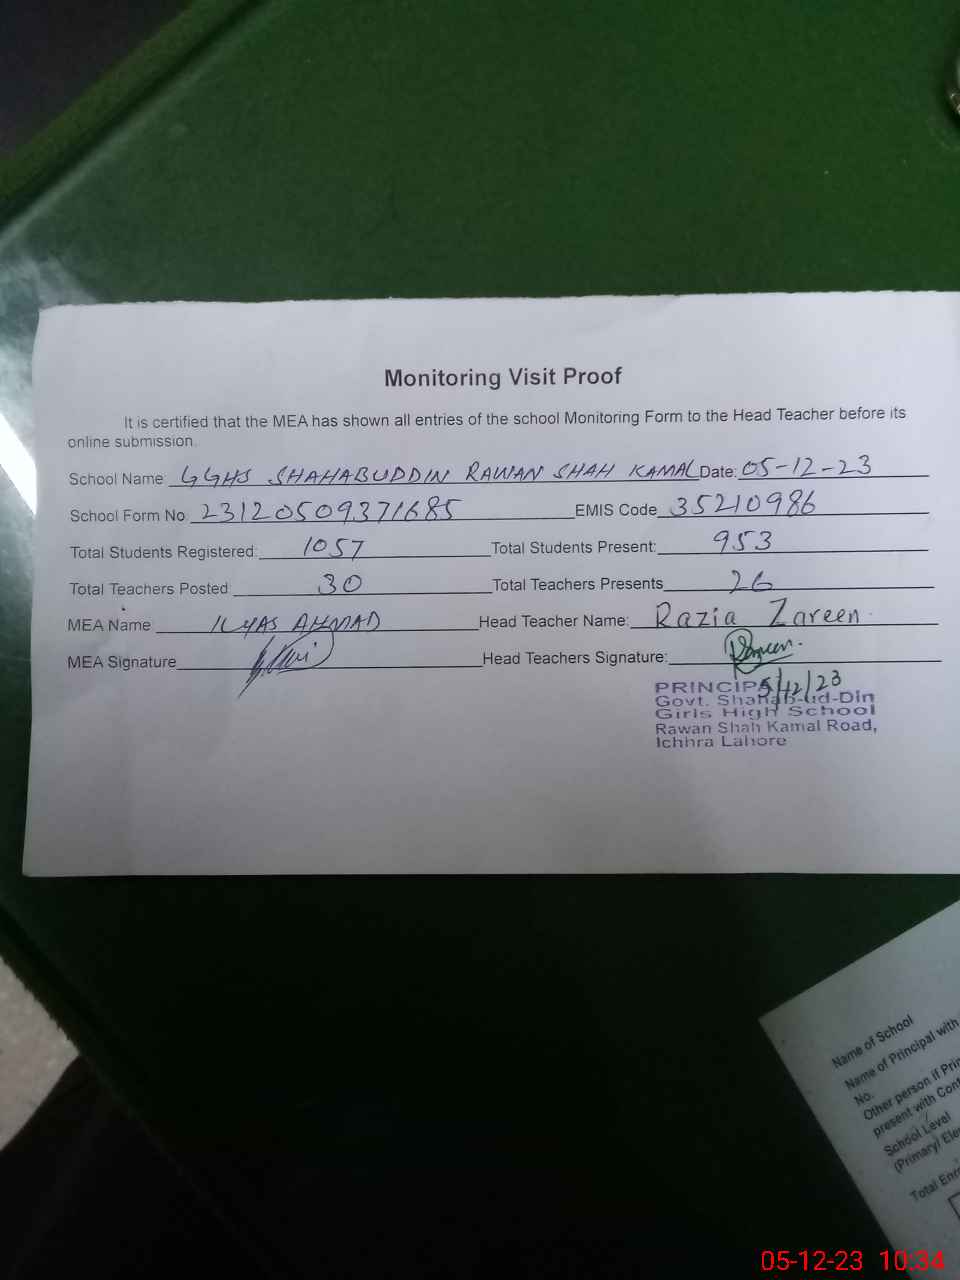 Monitoring Visit Proof
It is certified that the MEA has shown all entries of the school Monitoring Form to the Head Teacher before its
online submission.
School Name: GGHS SHAHABUDDIN RAWAN SHAH KAMAL Date: 05-12-23
School Form No: 23120509371685 EMIS Code 35210986
Total Students Registered: 1057 Total Students Present: 953
Total Teachers Posted: 30 Total Teachers Presents 26
MEA Name ILYAS AHMAD Head Teacher Name: Razia Zareen
MEA Signature Head Teachers Signature:
5/12/23
PRINCIPAL
Govt. Shahab-ud-Din
Girls High School
Rawan Shah Kamal Road,
Ichhra Lahore
Name of School
Name of Principal with
No.
Other person if Prin
present with Cont
School Level
(Primary/ Ele
Total Enr
05-12-23 10:34